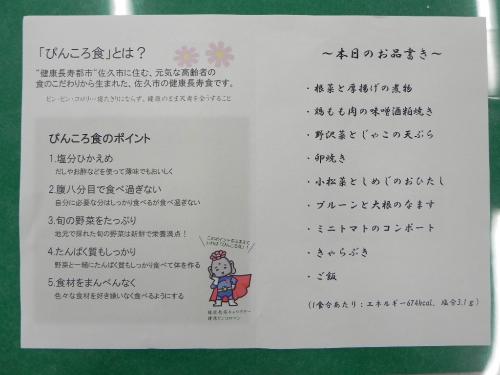 「ぴんころ食」とは？
"健康長寿都市"佐久市に住む、元気な高齢者の
食のこだわりから生まれた、佐久市の健康長寿食です。
ピン・ピン・コロリ…寝たきりにならず、健康のまま天寿を全うすること
ぴんころ食のポイント
1.塩分ひかえめ
だしやお酢などを使って薄味でもおいしく
2.腹八分目で食べ過ぎない
自分に必要な分はしっかり食べるが食べ過ぎない
3.旬の野菜をたっぷり
地元で採れた旬の野菜は新鮮で栄養満点！
4.たんぱく質もしっかり
野菜と一緒にたんぱく質もしっかり食べて体を作る
5.食材をまんべんなく
色々な食材を好き嫌いなく食べるようにする
健康長寿キャラクター
健康ピンコロマン
～本日のお品書き～
・根菜と厚揚げの煮物
・鶏もも肉の味噌酒粕焼き
・野沢菜とじゃこの天ぷら
・卵焼き
・小松菜としめじのおひたし
・プルーンと大根のなます
・ミニトマトのコンポート
・きゃらぶき
・ご飯
(1食分あたり：エネルギー674kcal、塩分3.1ｇ)